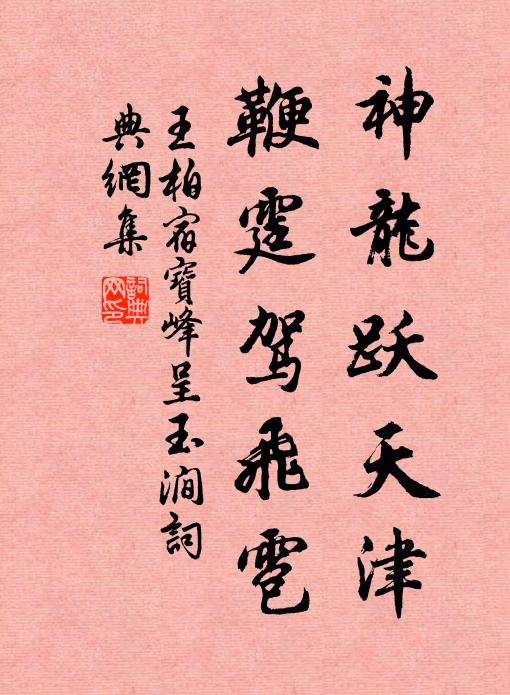 神龍跃天津
鞭霆駕飛雹
王柏宿寶峰呈玉澗詞
典網集
詞典
网印